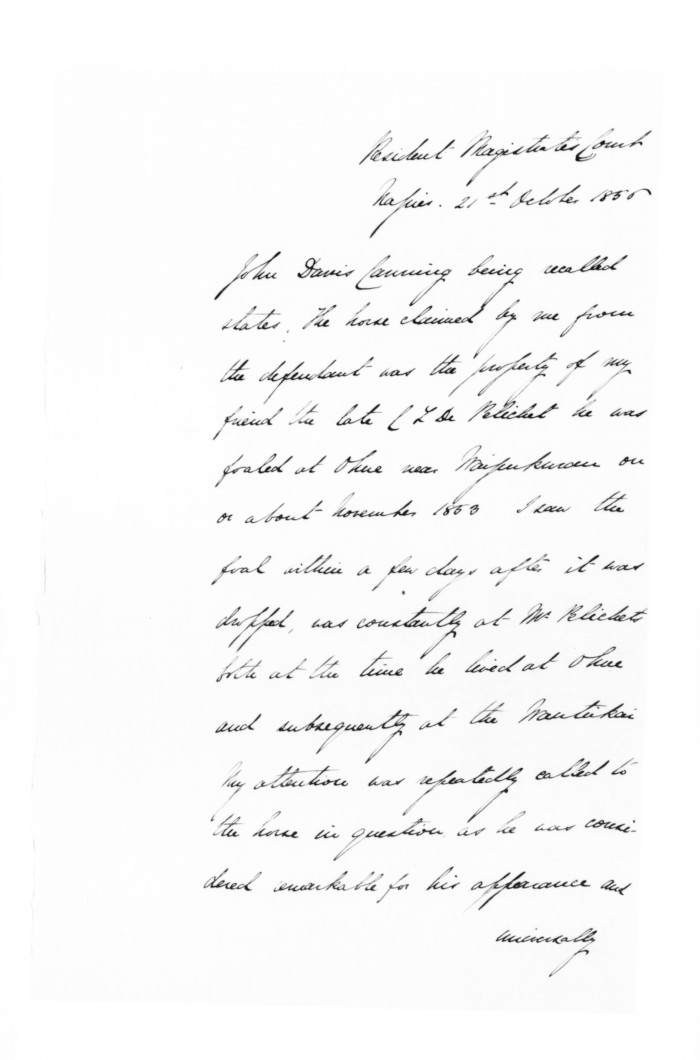 Resident Magistrates Court
Napier. 21st October 185
John Davis Canning being recalled
states, The horse claimed by me from
the defendant was the property of my
friend the late C L De Pelichet he was
foaled at Ohue near Waipukurau on
or about November 1853 I saw the
foal within a few days after it was
dropped, was constantly at Mr Pelichets
both at the time he lived at Ohue
and subsequently at the
My attention was repeatedly called to
the horse in question as he was consi-
dered remarkable for his appearance and
universally